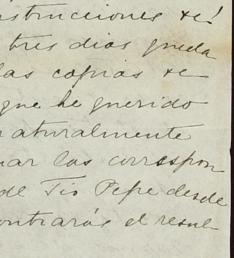 strucciones &c!
tres dias queda
las copias &c
que he querido
naturalmente
nar las correspon
de Tio Pepe desde
ontrarás el resul-